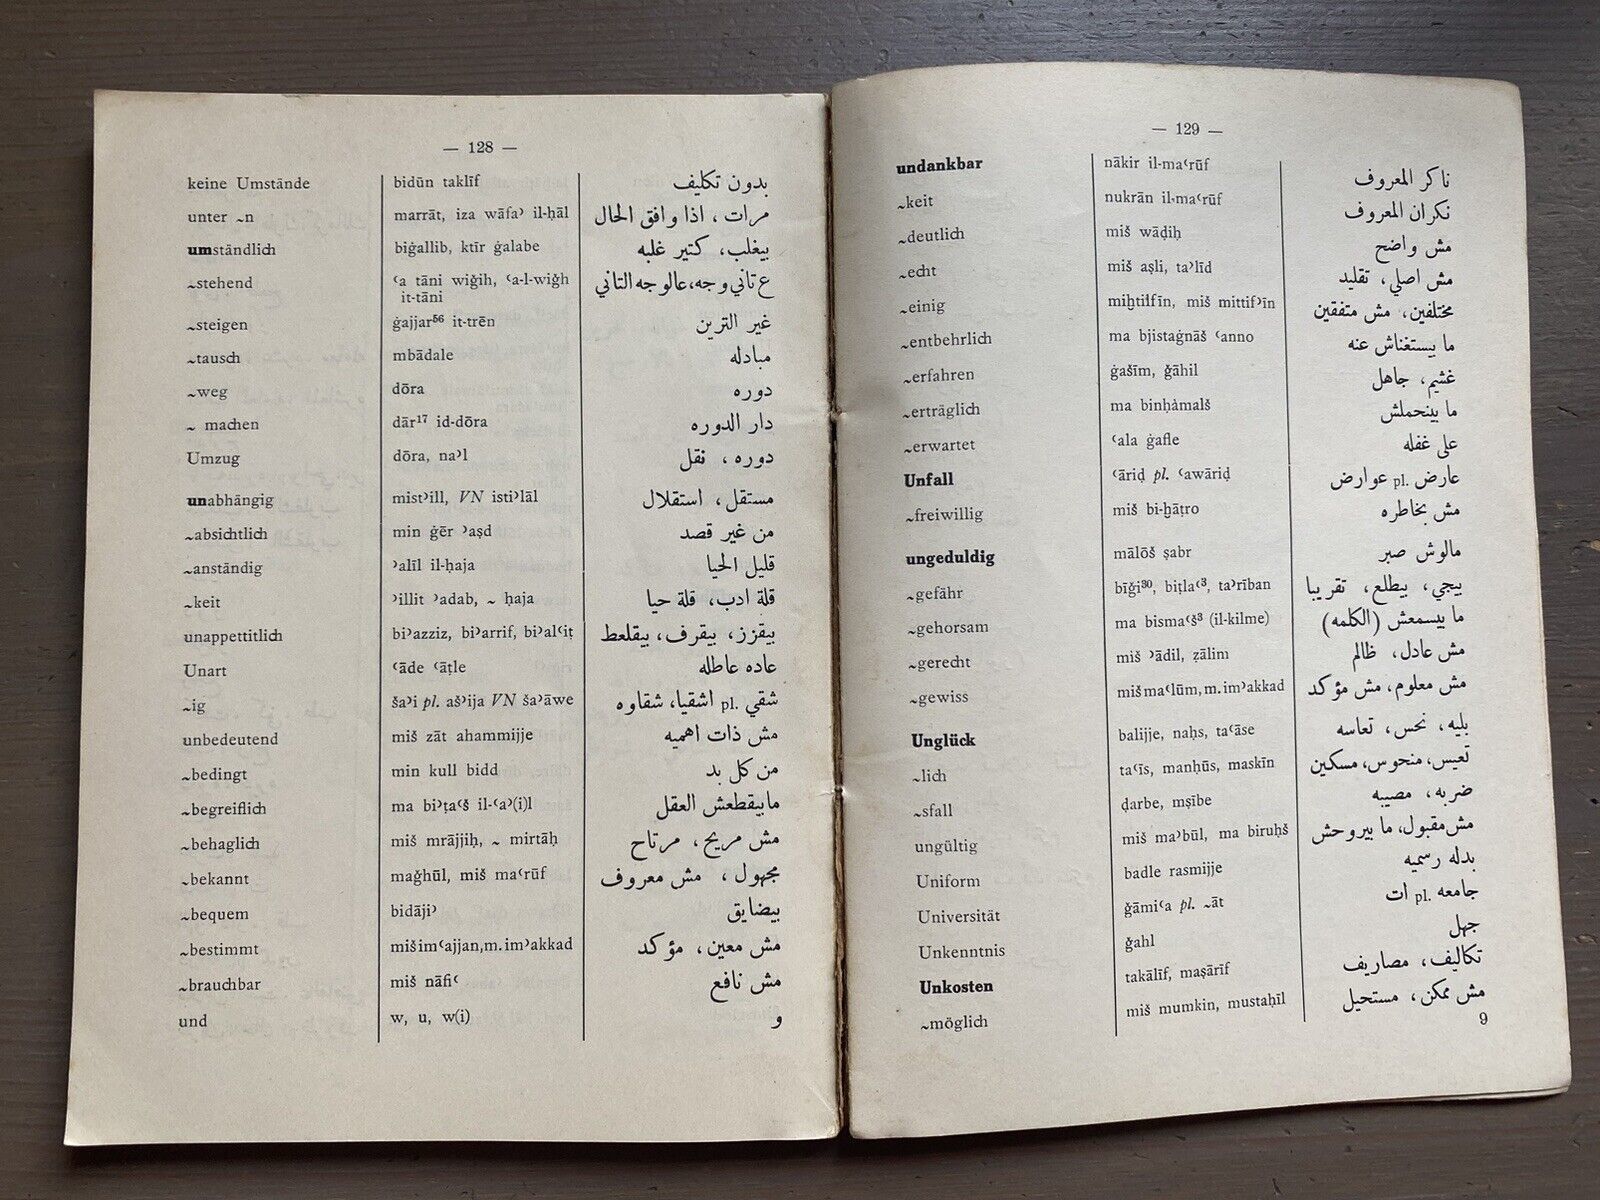 — 128 —
keine Umstände bidūn taklīf بدون تكليف
unter ~n marrāt, iza wāfaʾ il-ḥāl مرات ، اذا وافق الحال
umständlich biġallib, ktīr ġalabe بيغلب، كتير غلبه
~stehend ʿa tāni wiǧih, ʿa-l-wiǧh ع تاني وجه، عالوجه التاني
it-tāni
~steigen ġajjar⁵⁶ it-trēn غير الترين
~tausch mbādale مبادله
~weg dōra دوره
~ machen dār¹⁷ id-dōra دار الدوره
Umzug dōra, naʾl دوره ، نقل
unabhängig mistʾill, VN istiʾlāl مستقل ، استقلال
~absichtlich min ġēr ʾaṣd من غير قصد
~anständig ʾalīl il-ḥaja قليل الحيا
~keit ʾillit ʾadab, ~ ḥaja قلة ادب، قلة حيا
unappetitlich biʾazziz, biʾarrif, biʾalʿiṭ بيقزز، بيقرف، بيقلعط
Unart ʿāde ʿāṭle عاده عاطله
~ig šaʾi pl. ašʾija VN šaʾāwe شقي .pl اشقيا، شقاوه
unbedeutend miš zāt ahammijje مش ذات اهميه
~bedingt min kull bidd من كل بد
~begreiflich ma biʾṭaʿš il-ʿaʾ(i)l مابيقطعش العقل
~behaglich miš mrājjiḥ, ~ mirtāḥ مش مريح ، مرتاح
~bekannt maǧhūl, miš maʿrūf مجهول ، مش معروف
~bequem biḍājiʾ بيضايق
~bestimmt miš imʿajjan, m. imʾakkad مش معين ، مؤكد
~brauchbar miš nāfiʿ مش نافع
und w, u, w(i) و
— 129 —
undankbar nākir il-maʿrūf ناكر المعروف
~keit nukrān il-maʿrūf نكران المعروف
~deutlich miš wāḍiḥ مش واضح
~echt miš aṣli, taʾlīd مش اصلي ، تقليد
~einig miḫtilfīn, miš mittifʾīn مختلفين، مش متفقين
~entbehrlich ma bjistaġnāš ʿanno ما بيستغناش عنه
~erfahren ġašīm, ǧāhil غشيم، جاهل
~erträglich ma binḥamalš ما بينحملش
~erwartet ʿala ġafle على غفله
Unfall ʿāriḍ pl. ʿawāriḍ عارض .pl عوارض
~freiwillig miš bi-ḫāṭro مش بخاطره
ungeduldig mālōš ṣabr مالوش صبر
~gefähr bīǧi³⁰, biṭlaʿ³, taʾrīban بيجي، بيطلع، تقريبا
~gehorsam ma bismaʿš³ (il-kilme) ما بيسمعش (الكلمه)
~gerecht miš ʿādil, ẓālim مش عادل، ظالم
~gewiss miš maʿlūm, m. imʾakkad مش معلوم، مش مؤكد
Unglück balijje, naḥs, taʿāse بليه، نحس، تعاسه
~lich taʿīs, manḥūs, maskīn تعيس، منحوس، مسكين
~sfall ḍarbe, mṣībe ضربه، مصيبه
ungültig miš maʾbūl, ma biruḥš مش مقبول، ما بيروحش
Uniform badle rasmijje بدله رسميه
Universität ǧāmiʿa pl. ~āt جامعه .pl ات
Unkenntnis ǧahl جهل
Unkosten takālīf, maṣārīf تكاليف، مصاريف
~möglich miš mumkin, mustaḥīl مش ممكن، مستحيل
9